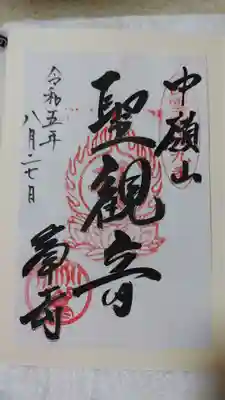 中嶺山
聖観音
令和五年
八月二七日